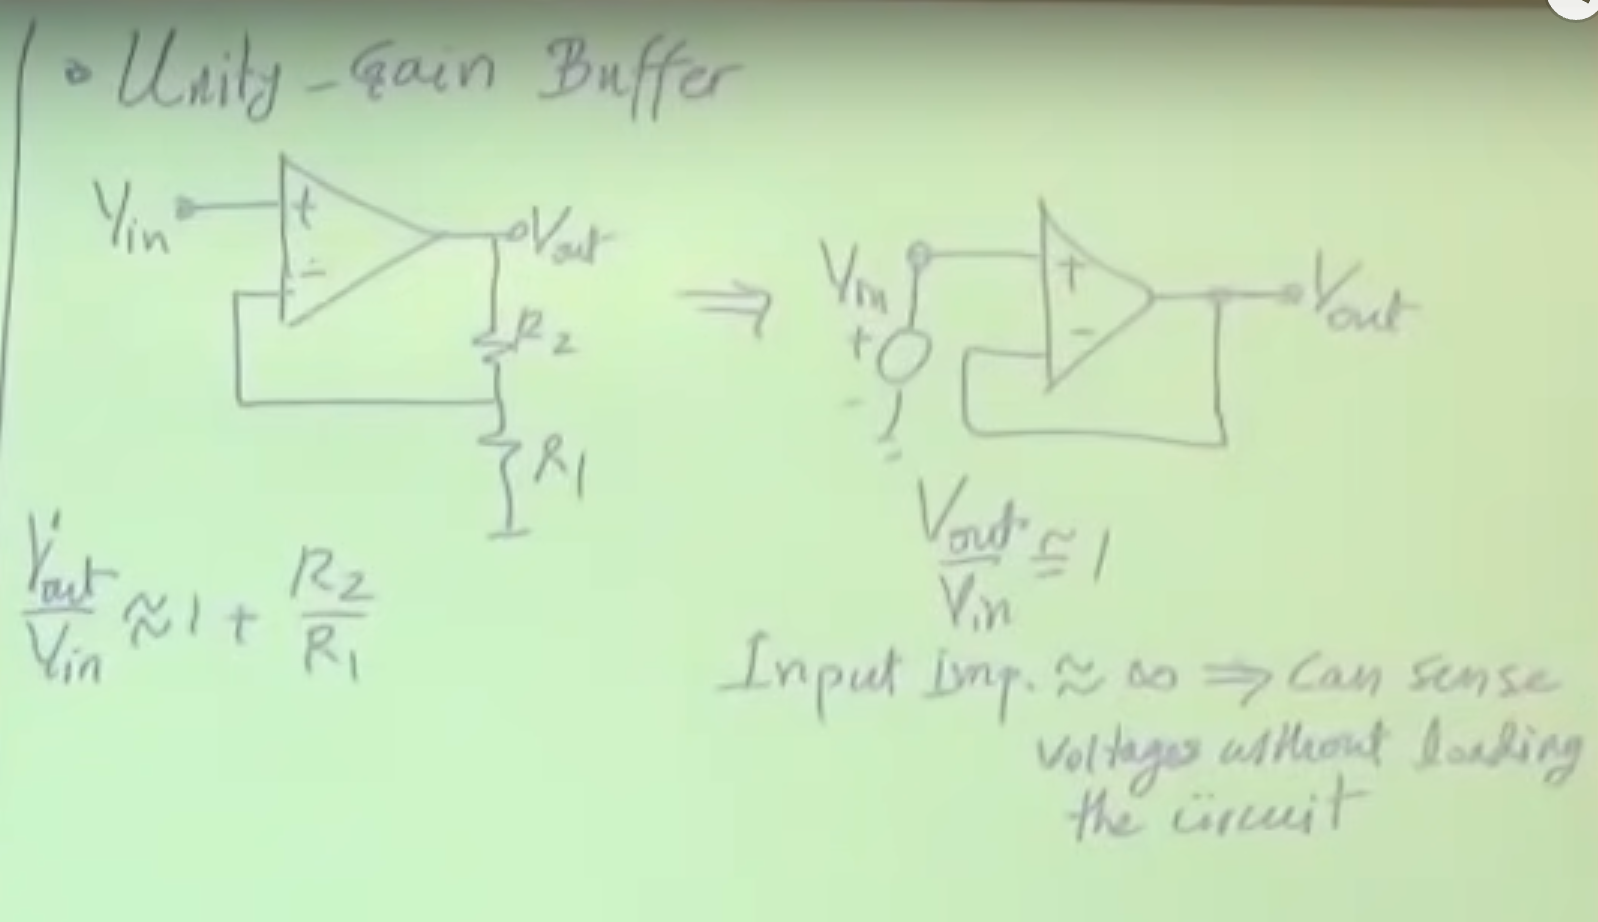 • Unity-Gain Buffer
Vin
+
-
Vout
R2
R1
Vout/Vin ≈ 1 + R2/R1
⇒
Vin
+
-
+
-
Vout
Vout/Vin ≅ 1
Input imp. ≈ ∞ ⇒ Can sense
voltages without loading
the circuit